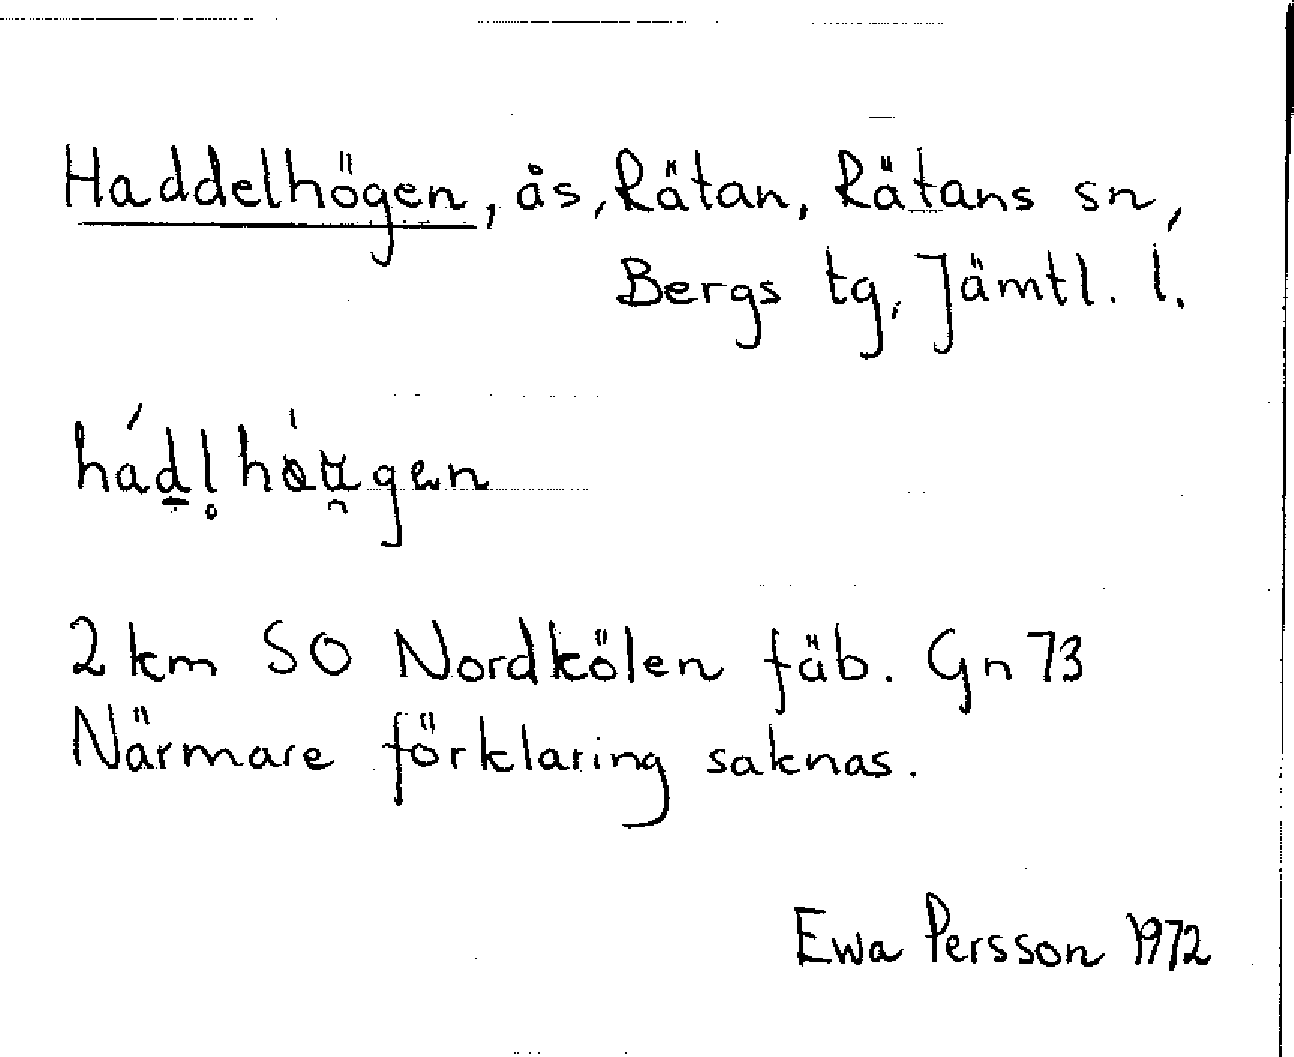 Haddelhögen, ås, Rätan, Rätans sn,
Bergs tg, Jämtl. l.
2 km SO Nordkölen fäb. Gn 73
Närmare förklaring saknas.
Ewa Persson 1972